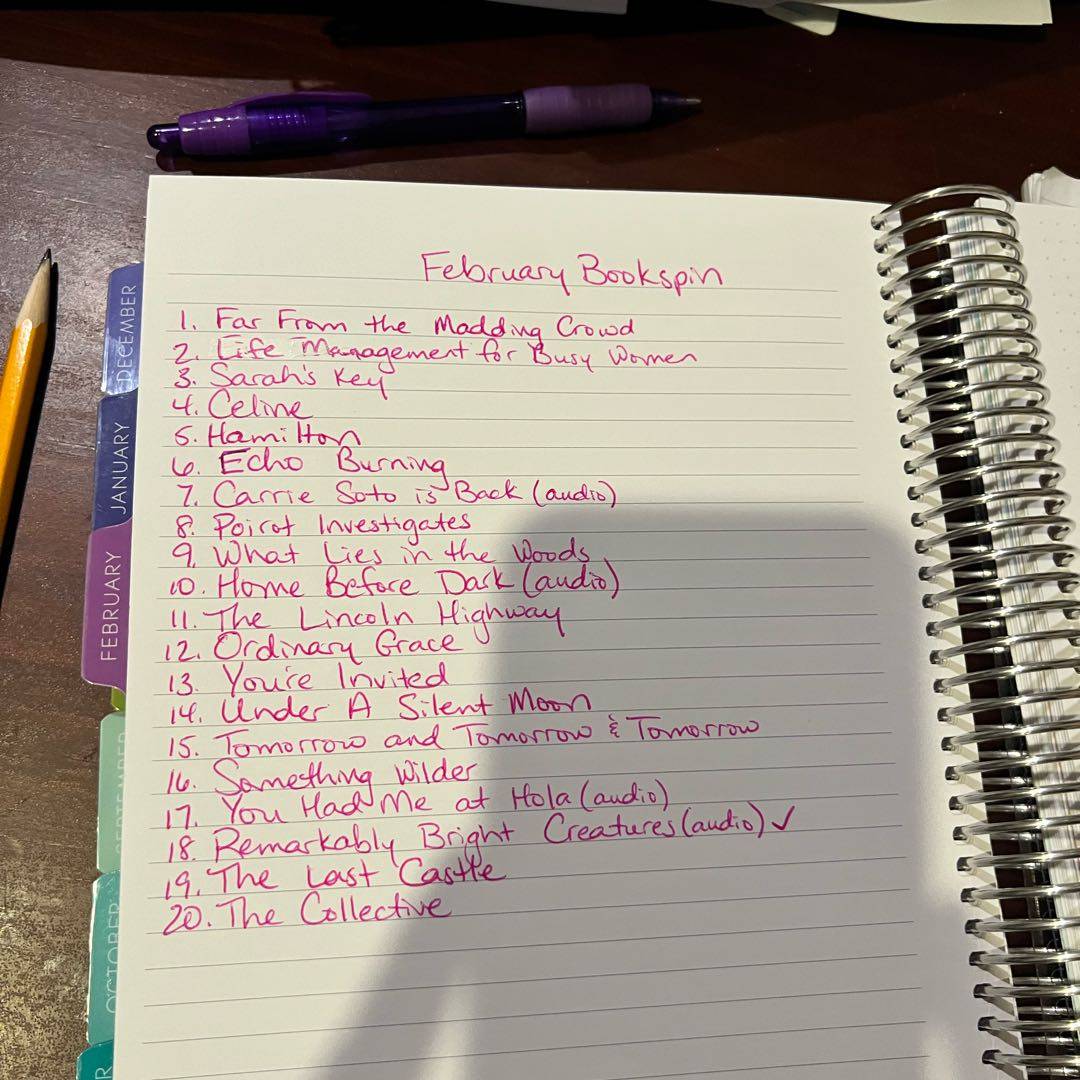 February Bookspin
1. Far From the Madding Crowd
2. Life Management for Busy Women
3. Sarah's Key
4. Celine
5. Hamilton
6. Echo Burning
7. Carrie Soto is Back (audio)
8. Poirot Investigates
9. What Lies in the Woods
10. Home Before Dark (audio)
11. The Lincoln Highway
12. Ordinary Grace
13. You're Invited
14. Under A Silent Moon
15. Tomorrow and Tomorrow & Tomorrow
16. Something Wilder
17. You Had Me at Hola (audio)
18. Remarkably Bright Creatures (audio) ✓
19. The Last Castle
20. The Collective
DECEMBER
JANUARY
FEBRUARY
SEPTEMBER
OCTOBER
R